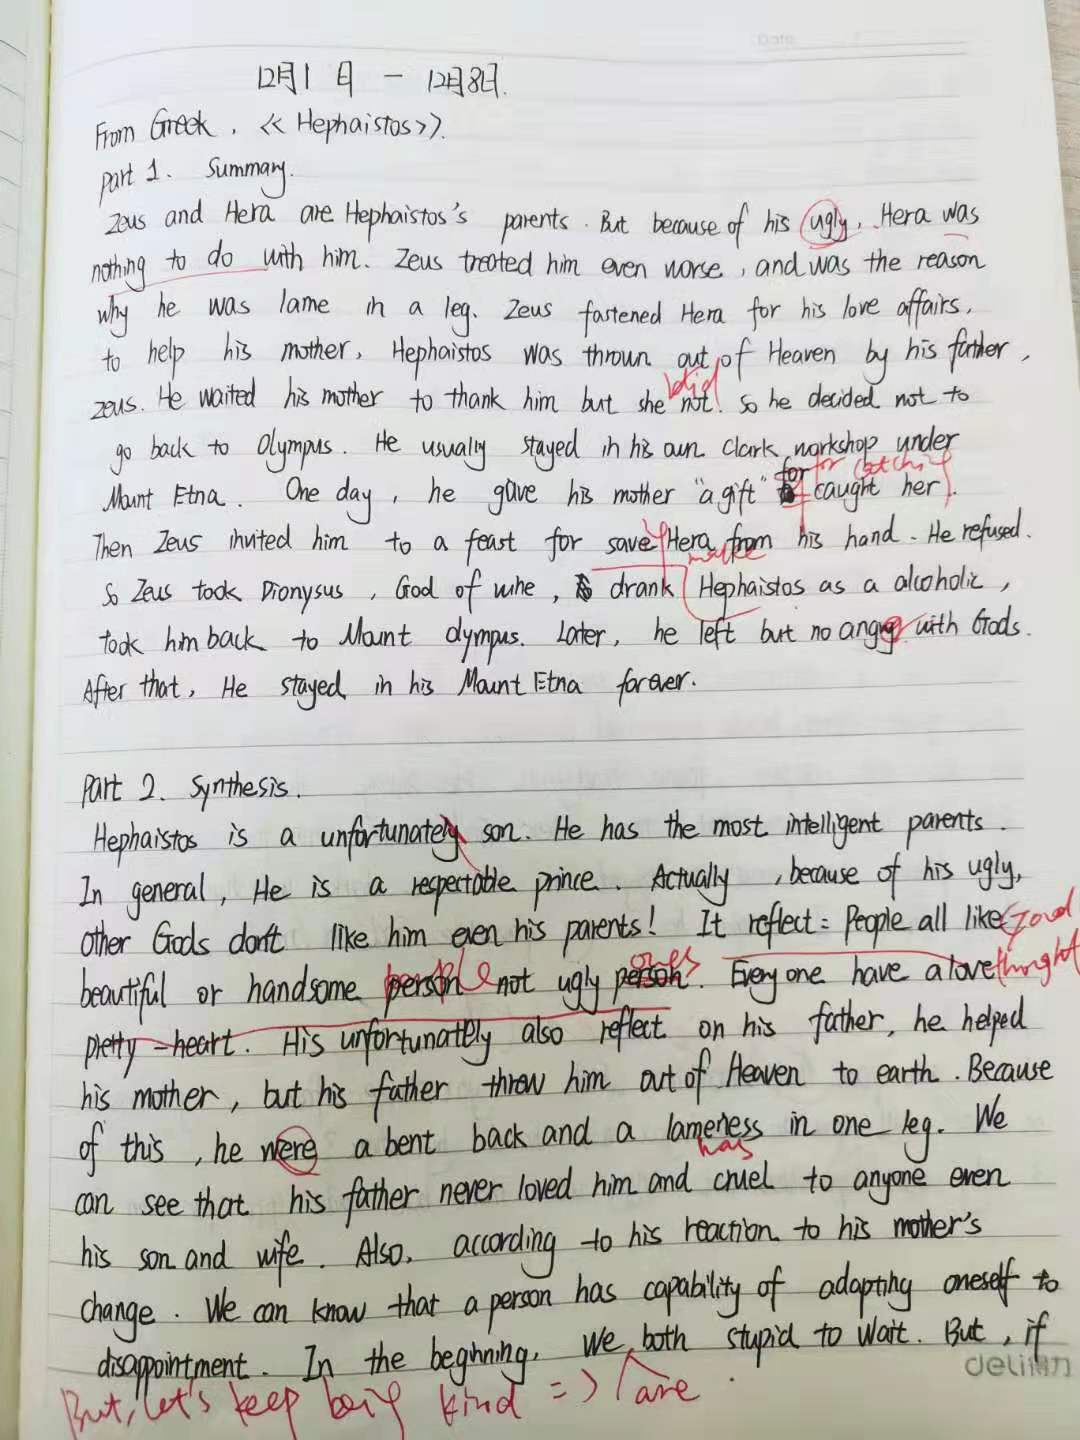 12月1日 — 12月8日.
From Greek, 《Hephaistos》.
part 1. Summary.
Zeus and Hera are Hephaistos's parents. But because of his ugly, Hera was
nothing to do with him. Zeus treated him even worse, and was the reason
why he was lame in a leg. Zeus fastened Hera for his love affairs,
to help his mother, Hephaistos was thrown out of Heaven by his father,
did
zeus. He waited his mother to thank him but she not. So he decided not to
go back to Olympus. He usually stayed in his own Clark workshop under
for for catching
Mount Etna. One day, he gave his mother "a gift" caught her.
Then Zeus invited him to a feast for save Hera from his hand. He refused.
make
So Zeus took Dionysus, God of wine, drank Hephaistos as a alcoholic,
took him back to Mount Olympus. Later, he left but no angry with Gods.
After that, He stayed in his Mount Etna forever.
Part 2. Synthesis.
Hephaistos is a unfortunately son. He has the most intelligent parents.
In general, He is a respectable prince. Actually, because of his ugly,
other Gods don't like him even his parents! It reflect: People all like good
people ones
beautiful or handsome person not ugly person. Everyone have a love thought
pretty-heart. His unfortunately also reflect on his father, he helped
his mother, but his father threw him out of Heaven to earth. Because
of this, he were a bent back and a lameness in one leg. We
has
can see that his father never loved him and cruel to anyone even
his son and wife. Also, according to his reaction to his mother's
change. We can know that a person has capability of adapting oneself to
disappointment. In the beginning, We both stupid to wait. But, if
deli得力
But, let's keep being kind => are